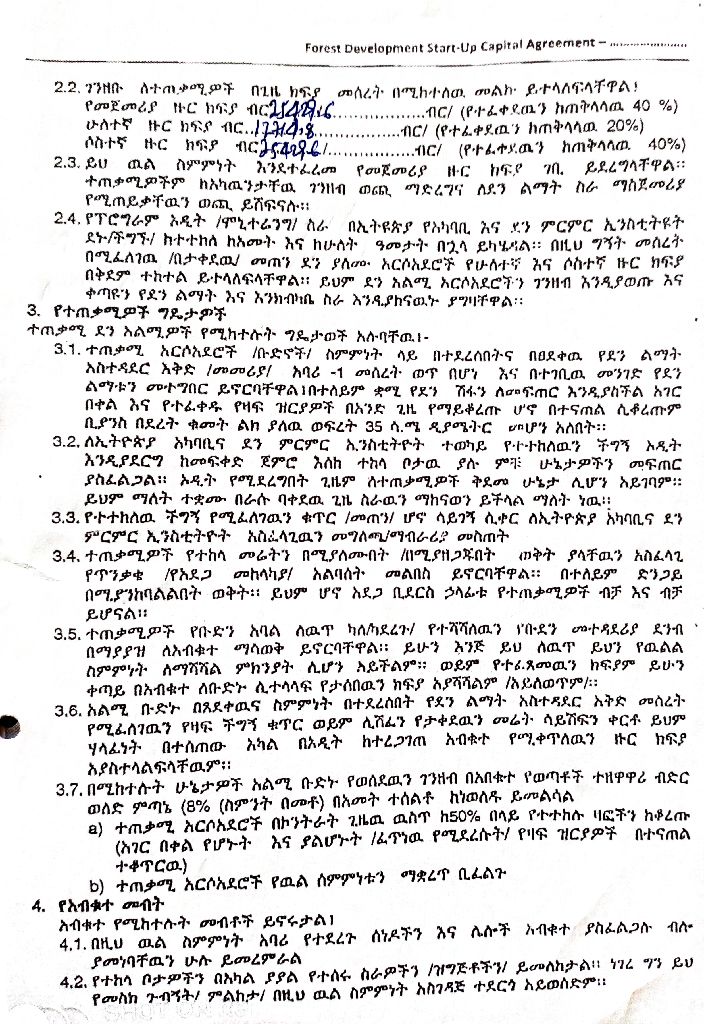 Forest Development Start-Up Capital Agreement – .......................
2.2. ገንዘቡ ለተጠቃሚዎች በጊዜ ክፍያ መሰረት በሚከተለዉ መልኩ ይተላለፍላቸዋል፤
የመጀመሪያ ዙር ክፍያ ብር .......................ብር/ (የተፈቀደዉን ከጠቅላላዉ 40 %)
ሁለተኛ ዙር ክፍያ ብር.. .......................ብር/ (የተፈቀደዉን ከጠቅላላዉ 20%)
ሶስተኛ ዙር ክፍያ ብር /.......................ብር/ (የተፈቀደዉን ከጠቅላላዉ 40%)
2.3. ይህ ዉል ስምምነት እንደተፈረመ የመጀመሪያ ዙር ክፍያ ገቢ ይደረግላቸዋል።
ተጠቃሚዎችም ከአካዉንታቸዉ ገንዘብ ወጪ ማድረግና ለደን ልማት ስራ ማስጀመሪያ
የሚጠይቃቸዉን ወጪ ይሸፍናሉ።
2.4. የፕሮግራም አዲት /ሞኒተሪንግ/ ስራ በኢትዩጵያ የአካባቢ እና ደን ምርምር ኢንስቲትዩት
ደኑ/ችግኙ/ ከተተከለ ከአመት እና ከሁለት ዓመታት በኋላ ይካሄዳል። በዚህ ግኝት መሰረት
በሚፈለገዉ /በታቀደዉ/ መጠን ደን ያለሙ አርሶአደሮች የሁለተኛ እና ሶስተኛ ዙር ክፍያ
በቅደም ተከተል ይተላለፍላቸዋል። ይህም ደን አልሚ አርሶአደሮች ገንዘብ እንዲያወጡ እና
ቀጣዩን የደን ልማት እና እንክብካቤ ስራ እንዲያከናዉኑ ያግዛቸዋል።
3. የተጠቃሚዎች ግዴታዎች
ተጠቃሚ ደን አልሚዎች የሚከተሉት ግዴታወች አሉባቸዉ፤-
3.1. ተጠቃሚ አርሶአደሮች /ቡድኖች/ ስምምነት ላይ በተደረሰበትና በፀደቀዉ የደን ልማት
አስተዳደር እቅድ /መመሪያ/ አባሪ -1 መሰረት ወጥ በሆነ እና በተገቢዉ መንገድ የደን
ልማቱን መተግበር ይኖርባቸዋል፤በተለይም ቋሚ የደን ሽፋን ለመፍጠር እንዲያስችል አገር
በቀል እና የተፈቀዱ የዛፍ ዝርያዎች በአንድ ጊዜ የማይቆረጡ ሆኖ በተናጠል ሲቆረጡም
ቢያንስ በደረት ቁመት ልክ ያለዉ ወፍረት 35 ሳ.ሜ ዲያሜትር መሆን አለበት።
3.2. ለኢትዮጵያ አካባቢና ደን ምርምር ኢንስቲትዮት ተወካይ የተተከለዉን ችግኝ አዲት
እንዲያደርግ ከመፍቀድ ጀምሮ እስከ ተከላ ቦታዉ ያሉ ምቹ ሁኔታዎችን መፍጠር
ያስፈልጋል። አዲት የሚደረግበት ጊዜም ለተጠቃሚዎች ቅደመ ሁኔታ ሊሆን አይገባም።
ይህም ማለት ተቋሙ በራሱ ባቀደዉ ጊዜ ስራዉን ማከናወን ይችላል ማለት ነዉ።
3.3. የተተከለዉ ችግኝ የሚፈለገዉን ቁጥር /መጠን/ ሆኖ ሳይገኝ ሲቀር ለኢትዮጵያ አካባቢና ደን
ምርምር ኢንስቲትዮት አስፈላጊዉን መግለጫ/ማብራሪያ መስጠት
3.4. ተጠቃሚዎች የተከላ መሬትን በሚያለሙበት /በሚያዘጋጁበት ወቅት ያላቸዉን አስፈላጊ
የጥንቃቄ /የአደጋ መከላከያ/ አልባሰት መልበስ ይኖርባቸዋል። በተለይም ድንጋይ
በሚያንከባልልበት ወቅት። ይህም ሆኖ አደጋ ቢደርስ ኃላፊቱ የተጠቃሚዎች ብቻ እና ብቻ
ይሆናል።
3.5. ተጠቃሚዎች የቡድን አባል ለዉጥ ካለ/ካደረጉ/ የተሻሻለዉን የቡደን መተዳደሪያ ደንብ
በማያያዝ ለአብቁተ ማሳወቅ ይኖርባቸዋል። ይሁን እንጅ ይህ ለዉጥ ይህን የዉልል
ስምምነት ለማሻሻል ምክንያት ሊሆን አይችልም። ወይም የተፈጸመዉን ክፍያም ይሁን
ቀጣይ በአብቁተ ለቡድኑ ሊተላላፍ የታሰበዉን ክፍያ አያሻሻልም /አይለወጥም/።
3.6. አልሚ ቡድኑ በጸደቀዉና ስምምነት በተደረሰበት የደን ልማት አስተዳደር እቅድ መሰረት
የሚፈለገዉን የዛፍ ችግኝ ቁጥር ወይም ሊሸፈን የታቀደዉን መሬት ሳይሸፍን ቀርቶ ይህም
ሃላፊነት በተሰጠው አካል በአዲት ከተረጋገጠ አብቁተ የሚቀጥለዉን ዙር ክፍያ
አያስተላልፍላቸዉም።
3.7. በሚከተሉት ሁኔታዎች አልሚ ቡድኑ የወሰደዉን ገንዘብ በአበቁተ የወጣቶች ተዘዋዋሪ ብድር
ወለድ ምጣኔ (8% (ስምንት በመቶ) በአመት ተሰልቶ ከነወለዱ ይመልሳል
a) ተጠቃሚ አርሶአደሮች በኮንትራት ጊዜዉ ዉስጥ ከ50% በላይ የተተከሉ ዛፎችን ከቆረጡ
(አገር በቀል የሆኑት እና ያልሆኑት /ፈጥነዉ የሚደረሱት/ የዛፍ ዝርያዎች በተናጠል
ተቆጥርዉ)
b) ተጠቃሚ አርሶአደሮች የዉል ስምምነቱን ማቋረጥ ቢፈልጉ
4. የአብቁተ መብት
አብቁተ የሚከተሉት መብቶች ይኖሩታል፤
4.1. በዚህ ዉል ስምምነት አባሪ የተደረጉ ሰነዶችን እና ሌሎች አብቁተ ያስፈልጋሉ ብሎ
ያመነባቸዉን ሁሉ ይመረምራል
4.2. የተከላ ቦታዎችን በአካል ያያል የተሰሩ ስራዎችን /ዝግጅቶችን/ ይመለከታል። ነገረ ግን ይህ
የመስክ ጉብኝት/ ምልከታ/ በዚህ ዉል ስምምነት አስገዳጅ ተደርጎ አይወሰድም።